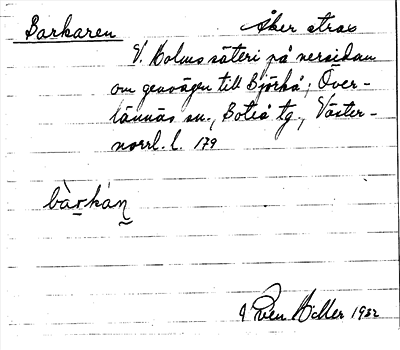 Barkaren Åker strax
V. Holms säteri på versidan
om genvägen till Björkå; Över-
lännäs sn., Boteå tg., Väster-
norrl. l. 179
bàrkán
Möller 1932